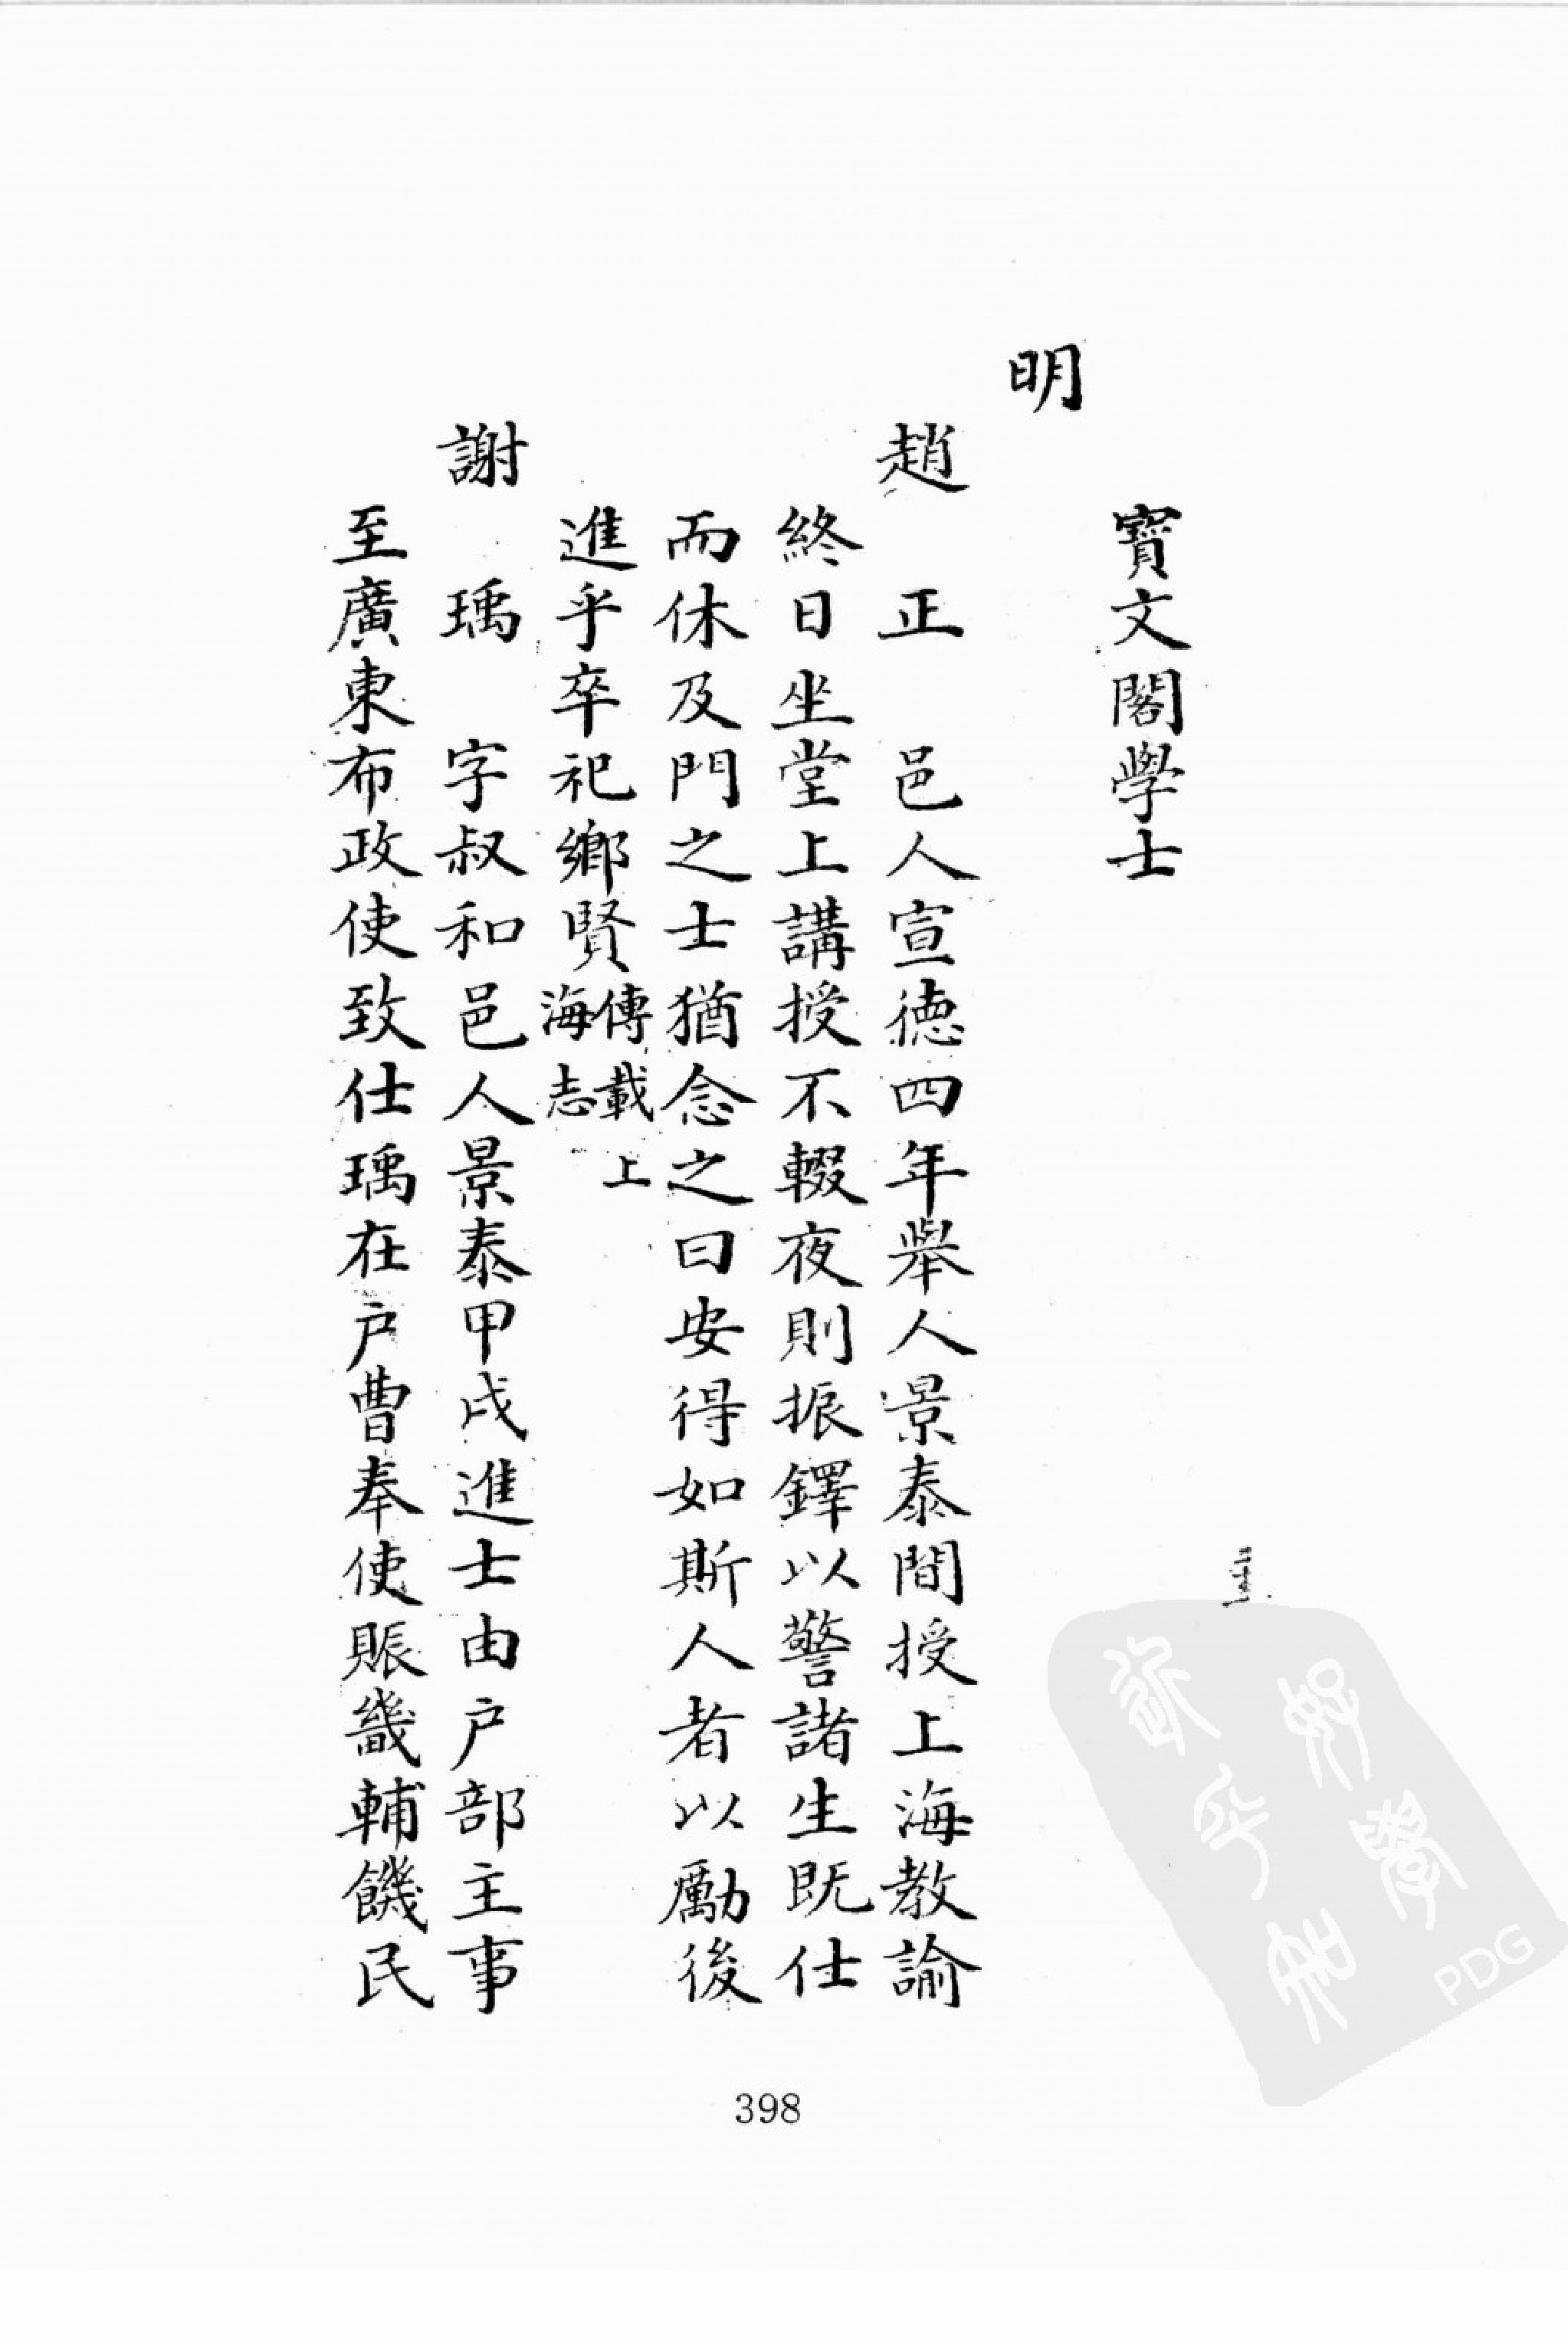 寶文閣學士
明
趙　正　邑人宣德四年舉人景泰間授上海教諭
終日坐堂上講授不輟夜則振鐸以警諸生既仕
而休及門之士猶念之曰安得如斯人者以勵後
進乎卒祀鄉賢傳載上海志
謝　瑀　字叔和邑人景泰甲戌進士由户部主事
至廣東布政使致仕瑀在户曹奉使賑畿輔饑民
398
PDG